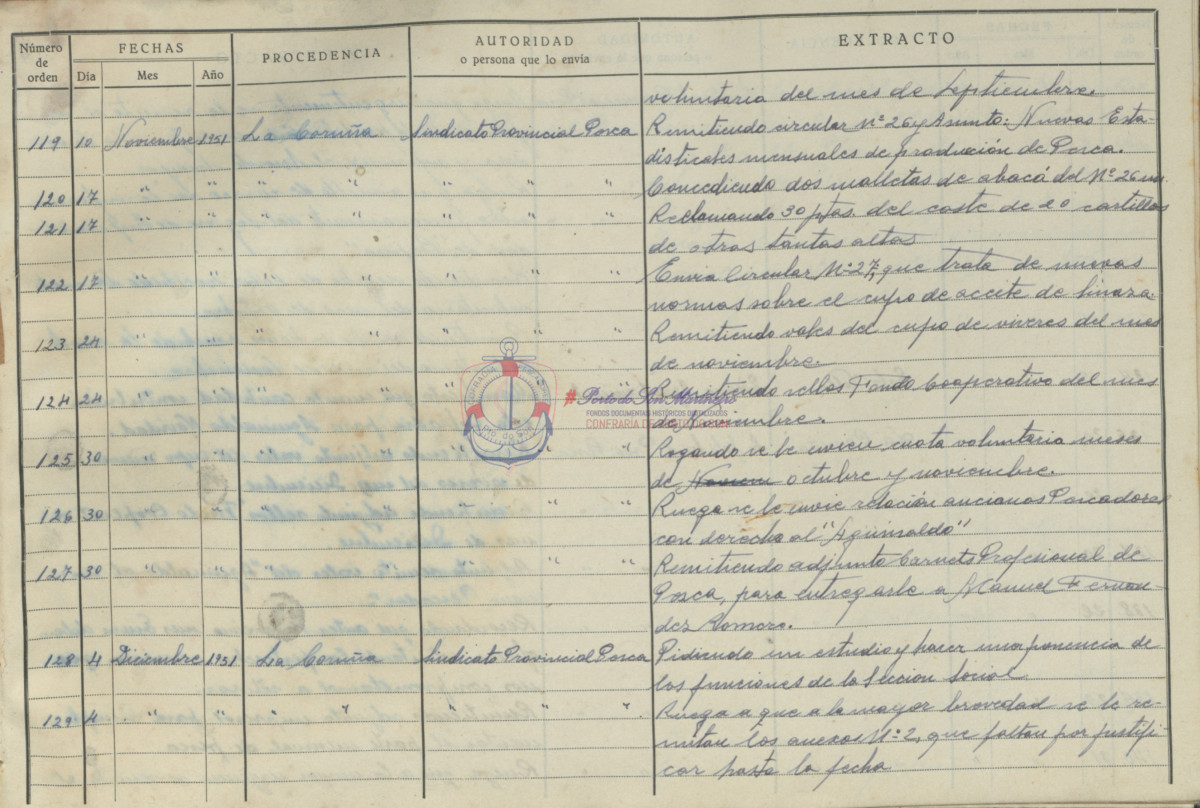 Número de orden FECHAS PROCEDENCIA AUTORIDAD o persona que lo envía EXTRACTO
Día Mes Año
voluntaria del mes de Septiembre.
119 10 Noviembre 1951 La Coruña Sindicato Provincial Pesca Remitiendo circular Nº 26 y Asunto: Nuevas Esta-
disticales mensuales de producción de Pesca.
120 17 " " " " " " " Concediendo dos malletas de abacá del Nº 26 m.
121 17 " " " " " " " Reclamando 30 ptas. del coste de 20 cartillas
de otras tantas altas
122 17 " " " " " " " Envia Circular Nº 27, que trata de nuevas
normas sobre el cupo de aceite de linaza.
123 24 " " " " " " " Remitiendo vales del cupo de viveres del mes
de noviembre.
124 24 " " " " " Remitiendo sellos Fondo Cooperativo del mes
de Noviembre.
125 30 " " " " " " " Rogando se le envien cuota voluntaria meses
de octubre y noviembre.
126 30 " " " " " " " Ruega se le envie relación ancianos Pescadores
con derecho al "Aguinaldo"
127 30 " " " " " " " Remitiendo adjunto Carnets Profesional de
Pesca, para entregarle a Manuel Fernan-
dez Romero.
128 4 Diciembre 1951 La Coruña Sindicato Provincial Pesca Pidiendo un estudio y hacer una ponencia de
las funciones de la Sección Social
129 4 " " " " " " " Ruega a que a la mayor brevedad se le re-
mitan los anexos Nº 2, que faltan por justifi-
car hasta la fecha
#Porto de San Martiño
FONDOS DOCUMENTAIS HISTÓRICOS DIXITALIZADOS